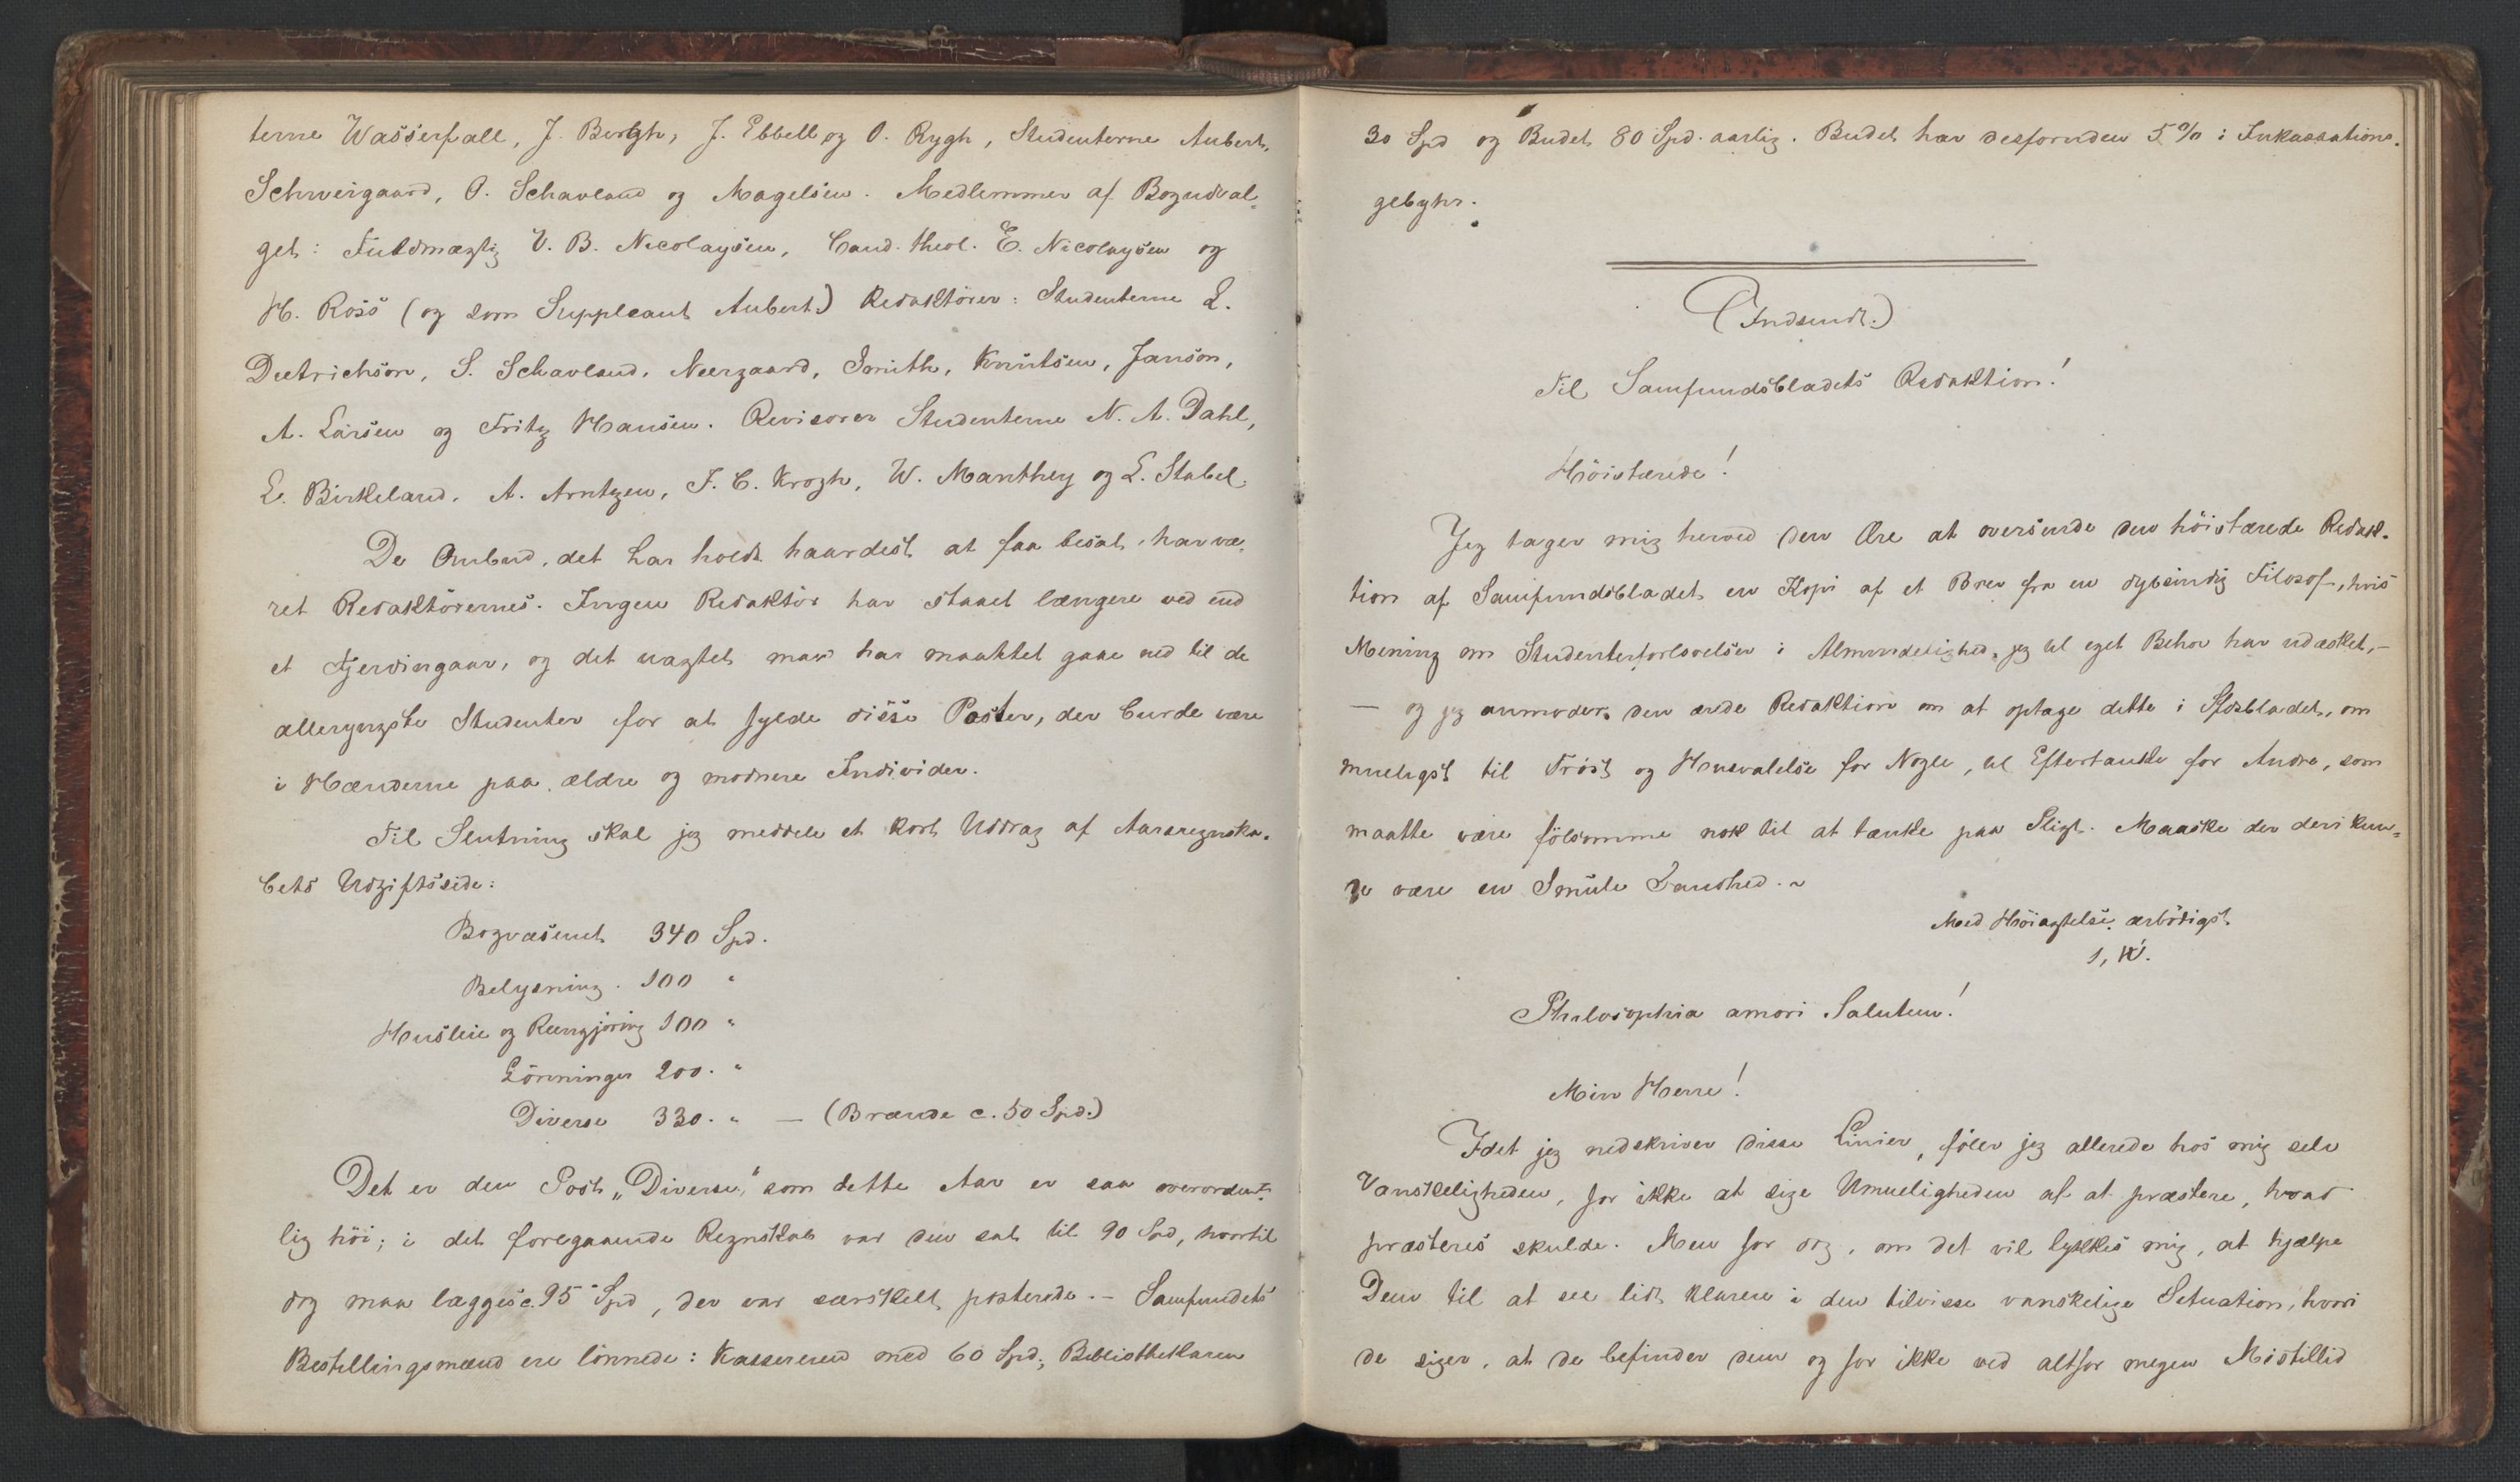 terne Wasserfall, J. Bergh, J. Ebbell og O. Rygh, Studenterne Aubert,
Schweigaard, O. Schavland og Magelsen. Medlemmer af Bogudval-
get: Fuldmægtig V. B. Nicolaysen, Cand. theol. E. Nicolaysen og
H. Ross (og som Suppleant Aubert.) Redaktörer: Studenterne L.
Dietrichson, S. Schavland, Neergaard, Smith, Knutsen, Janson,
A. Larsen og Fritz Hansen. Revisorer Studenterne N. A. Dahl,
E. Birkeland, A. Arntzen, F. C. Krogh, W. Manthey og L. Stabel.
De Ombud, det har holdt haardest at faa besat, har væ-
ret Redaktörernes. Ingen Redaktör har staaet længere ved end
et Fjerdingaar, og det uagtet man har maattet gaae ned til de
alleryngste Studenter for at fylde disse Poster, der burde være
i Hænderne paa ældre og modnere Individer.
Til Slutning skal jeg meddele et kort Uddrag af Aarsregnska-
bets Udgiftsside:
Bogvæsenet 340 Spd.
Belysning. 100 "
Husleie og Rengjöring 100 "
Lönninger 200. "
Diverse 330. " — (Brænde c. 50 Spd.)
Det er den Post „Diverse," som dette Aar er saa overordent-
lig höi; i det foregaaende Regnskab var den sat til 90 Spd, hvortil
dog maa lægges c. 95 Spd, der var særskilt posterede. – Samfundets
Bestillingsmænd ere lönnede: Kassereren med 60 Spd; Bibliothekaren
30 Spd og Budet 80 Spd. aarlig. Budet har desforuden 5 % i Inkassations-
gebyhr.
(Indsendt.)
Til Samfundsbladets Redaktion!
Höistærede!
Jeg tager mig herved den Ære at oversende den höistærede Redak-
tion af Samfundsbladet en Kopi af et Brev fra en dybsindig Filosof, hvis
Mening om Studenterforlovelser i Almindelighed, jeg til eget Behov har udæsket, –
— og jeg anmoder den ærede Redaktion om at optage dette i Sfdsbladet, om
mueligst til Tröst og Husvalelse for Nogle, til Eftertanke for Andre, som
maatte være fölsomme nok til at tænke paa Sligt. Maaske der deri kun-
de være en Smule Sandhed. ~
Med Höiagtelse ærbödigst
Philosophia amori Salutem!
Min Herre!
Idet jeg nedskriver disse Linier, föler jeg allerede hos mig selv
Vanskeligheden, for ikke at sige Umueligheden af at præstere, hvad
præsteres skulde. Men for dog, om det vil lykkes mig, at hjælpe
Dem til at see lidt klarere i den tilvisse vanskelige Situation, hvori
de siger, at de befinder dem og for ikke ved altfor megen Mistillid